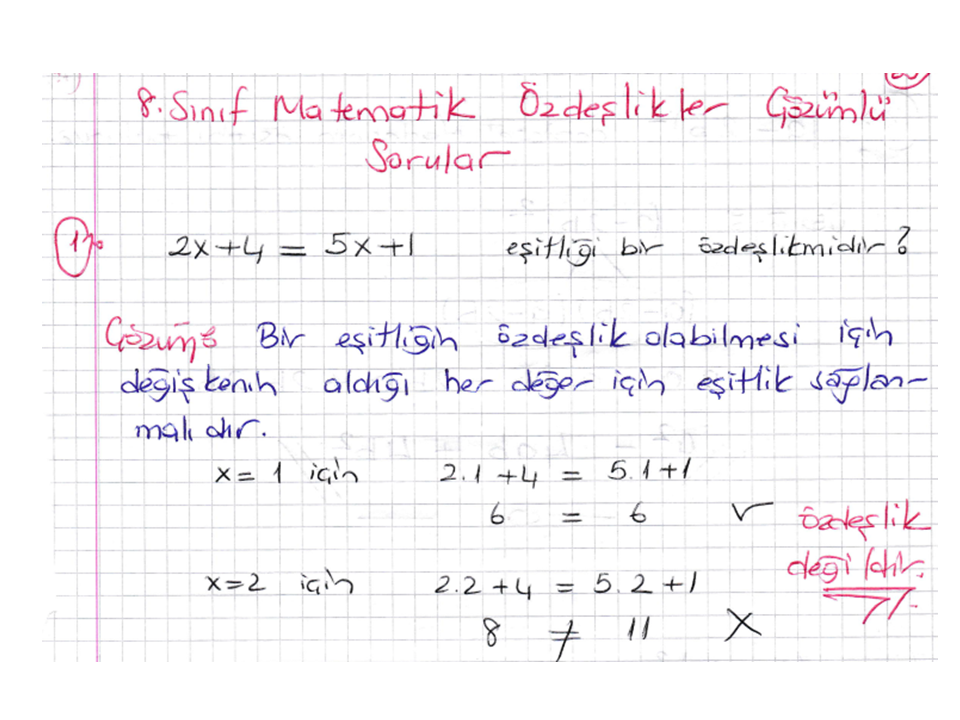 8. Sınıf Matematik Özdeşlikler Çözümlü
Sorular
1) 2x+4 = 5x+1 eşitliği bir özdeşlikmidir?
Çözüm: Bir eşitliğin özdeşlik olabilmesi için
değişkenin aldığı her değer için eşitlik sağlan-
malıdır.
x = 1 için 2.1 +4 = 5.1+1
6 = 6 ✓ özdeşlik
değildir.
x=2 için 2.2+4 = 5.2+1
8 ≠ 11 X